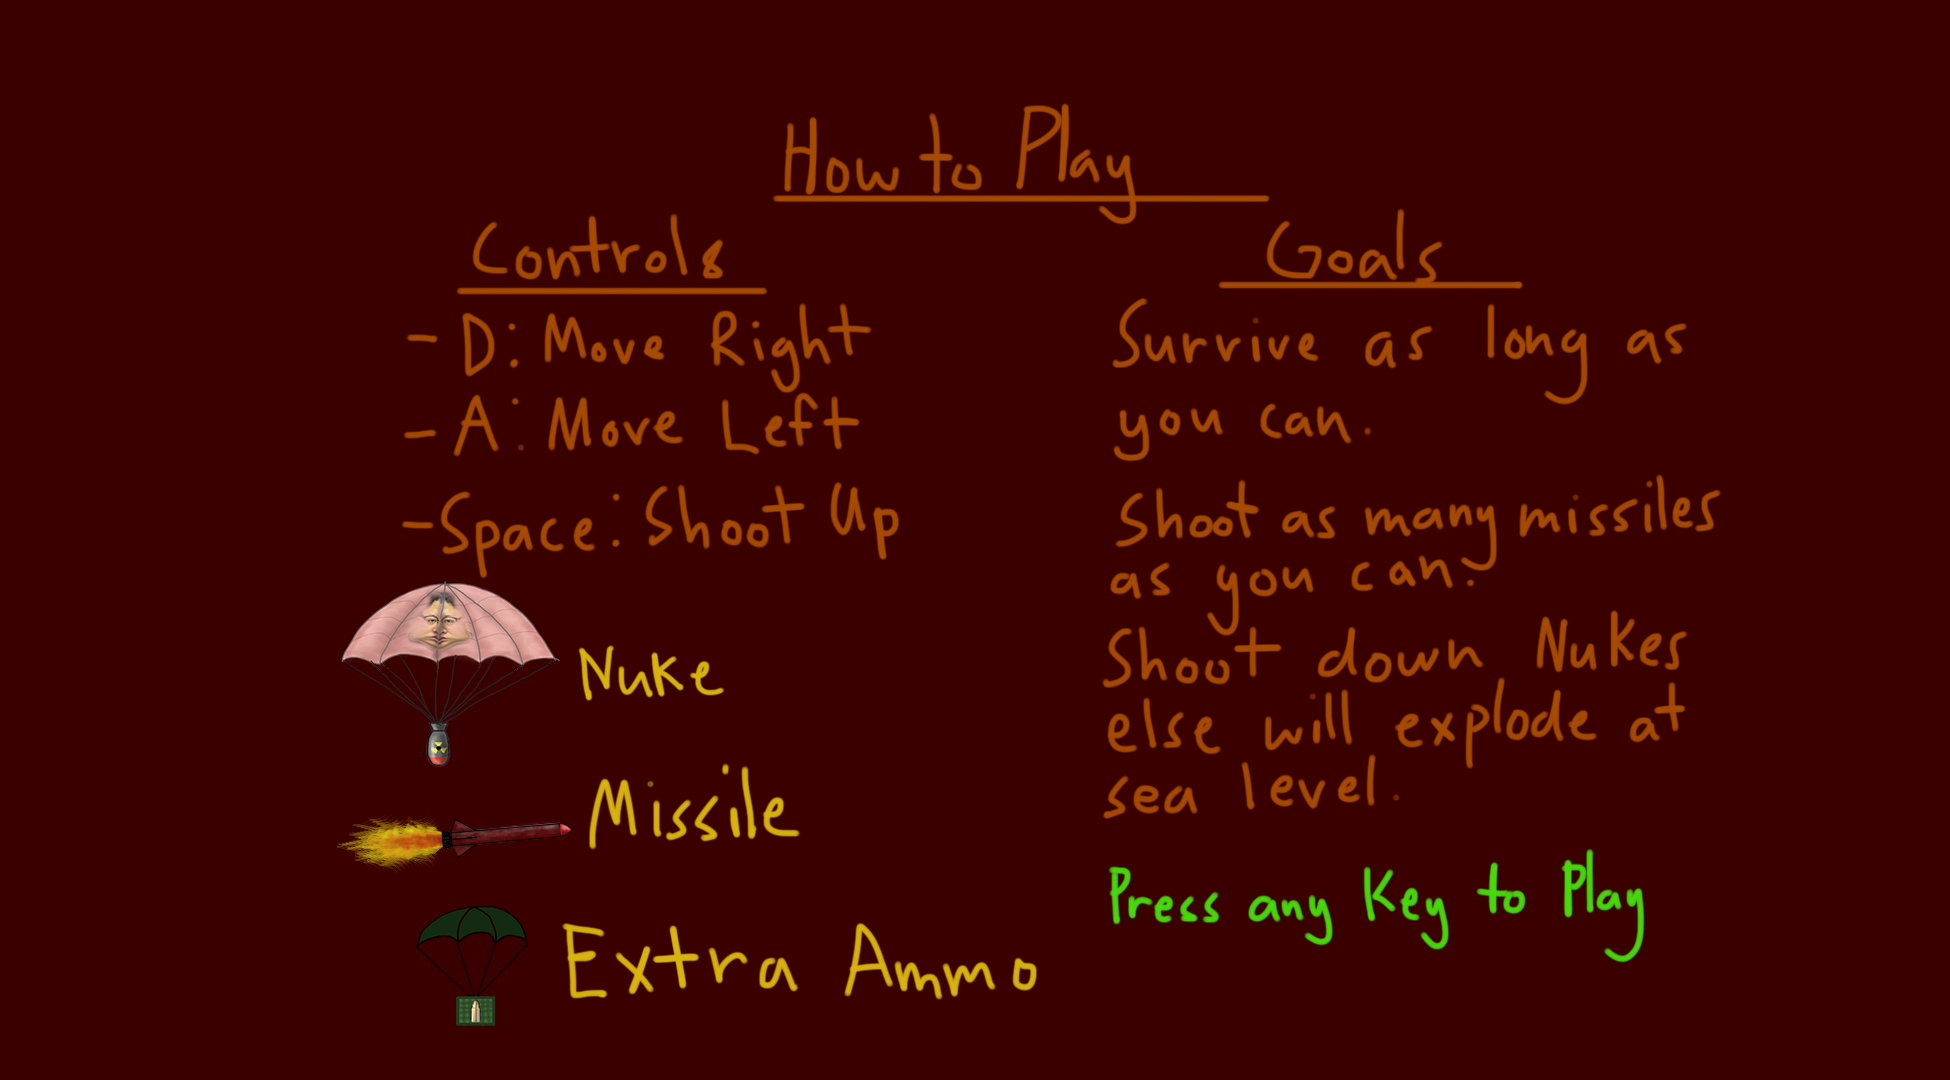 How to Play
Controls
- D: Move Right
- A: Move Left
- Space: Shoot Up
Nuke
Missile
Extra Ammo
Goals
Survive as long as
you can.
Shoot as many missiles
as you can.
Shoot down Nukes
else will explode at
sea level.
Press any Key to Play